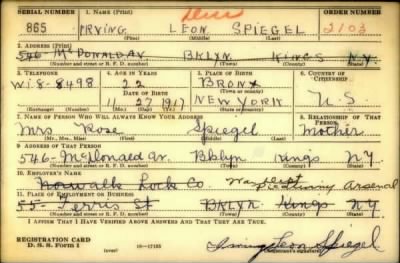 SERIAL NUMBER 1. NAME (Print) ORDER NUMBER
865 IRVING LEON SPIEGEL 2103
(First) (Middle) (Last)
2. ADDRESS (Print)
546 McDONALD AV BKLYN KINGS N.Y.
(Number and street or R. F. D. number) (Town) (County) (State)
3. TELEPHONE 4. AGE IN YEARS 5. PLACE OF BIRTH 6. COUNTRY OF CITIZENSHIP
Wi 8-8498 22 BRONX
DATE OF BIRTH (Town or county)
11 27 1917 NEW YORK U.S.
(Exchange) (Number) (Mo.) (Day) (Yr.) (State or country)
7. NAME OF PERSON WHO WILL ALWAYS KNOW YOUR ADDRESS 8. RELATIONSHIP OF THAT PERSON
Mrs Rose Spiegel Mother
(Mr., Mrs., Miss) (First) (Middle) (Last)
9. ADDRESS OF THAT PERSON
546 McDonald Av. Bklyn Kings NY
(Number and street or R. F. D. number) (Town) (County) (State)
10. EMPLOYER'S NAME
Norwalk Lock Co. War Dept Picatinny Arsenal
11. PLACE OF EMPLOYMENT OR BUSINESS
55 Ferris St BKLYN Kings NY
(Number and street or R. F. D. number) (Town) (County) (State)
I AFFIRM THAT I HAVE VERIFIED ABOVE ANSWERS AND THAT THEY ARE TRUE.
REGISTRATION CARD
D. S. S. FORM 1 (over) 16-17105 Irving Leon Spiegel
(Registrant's signature)